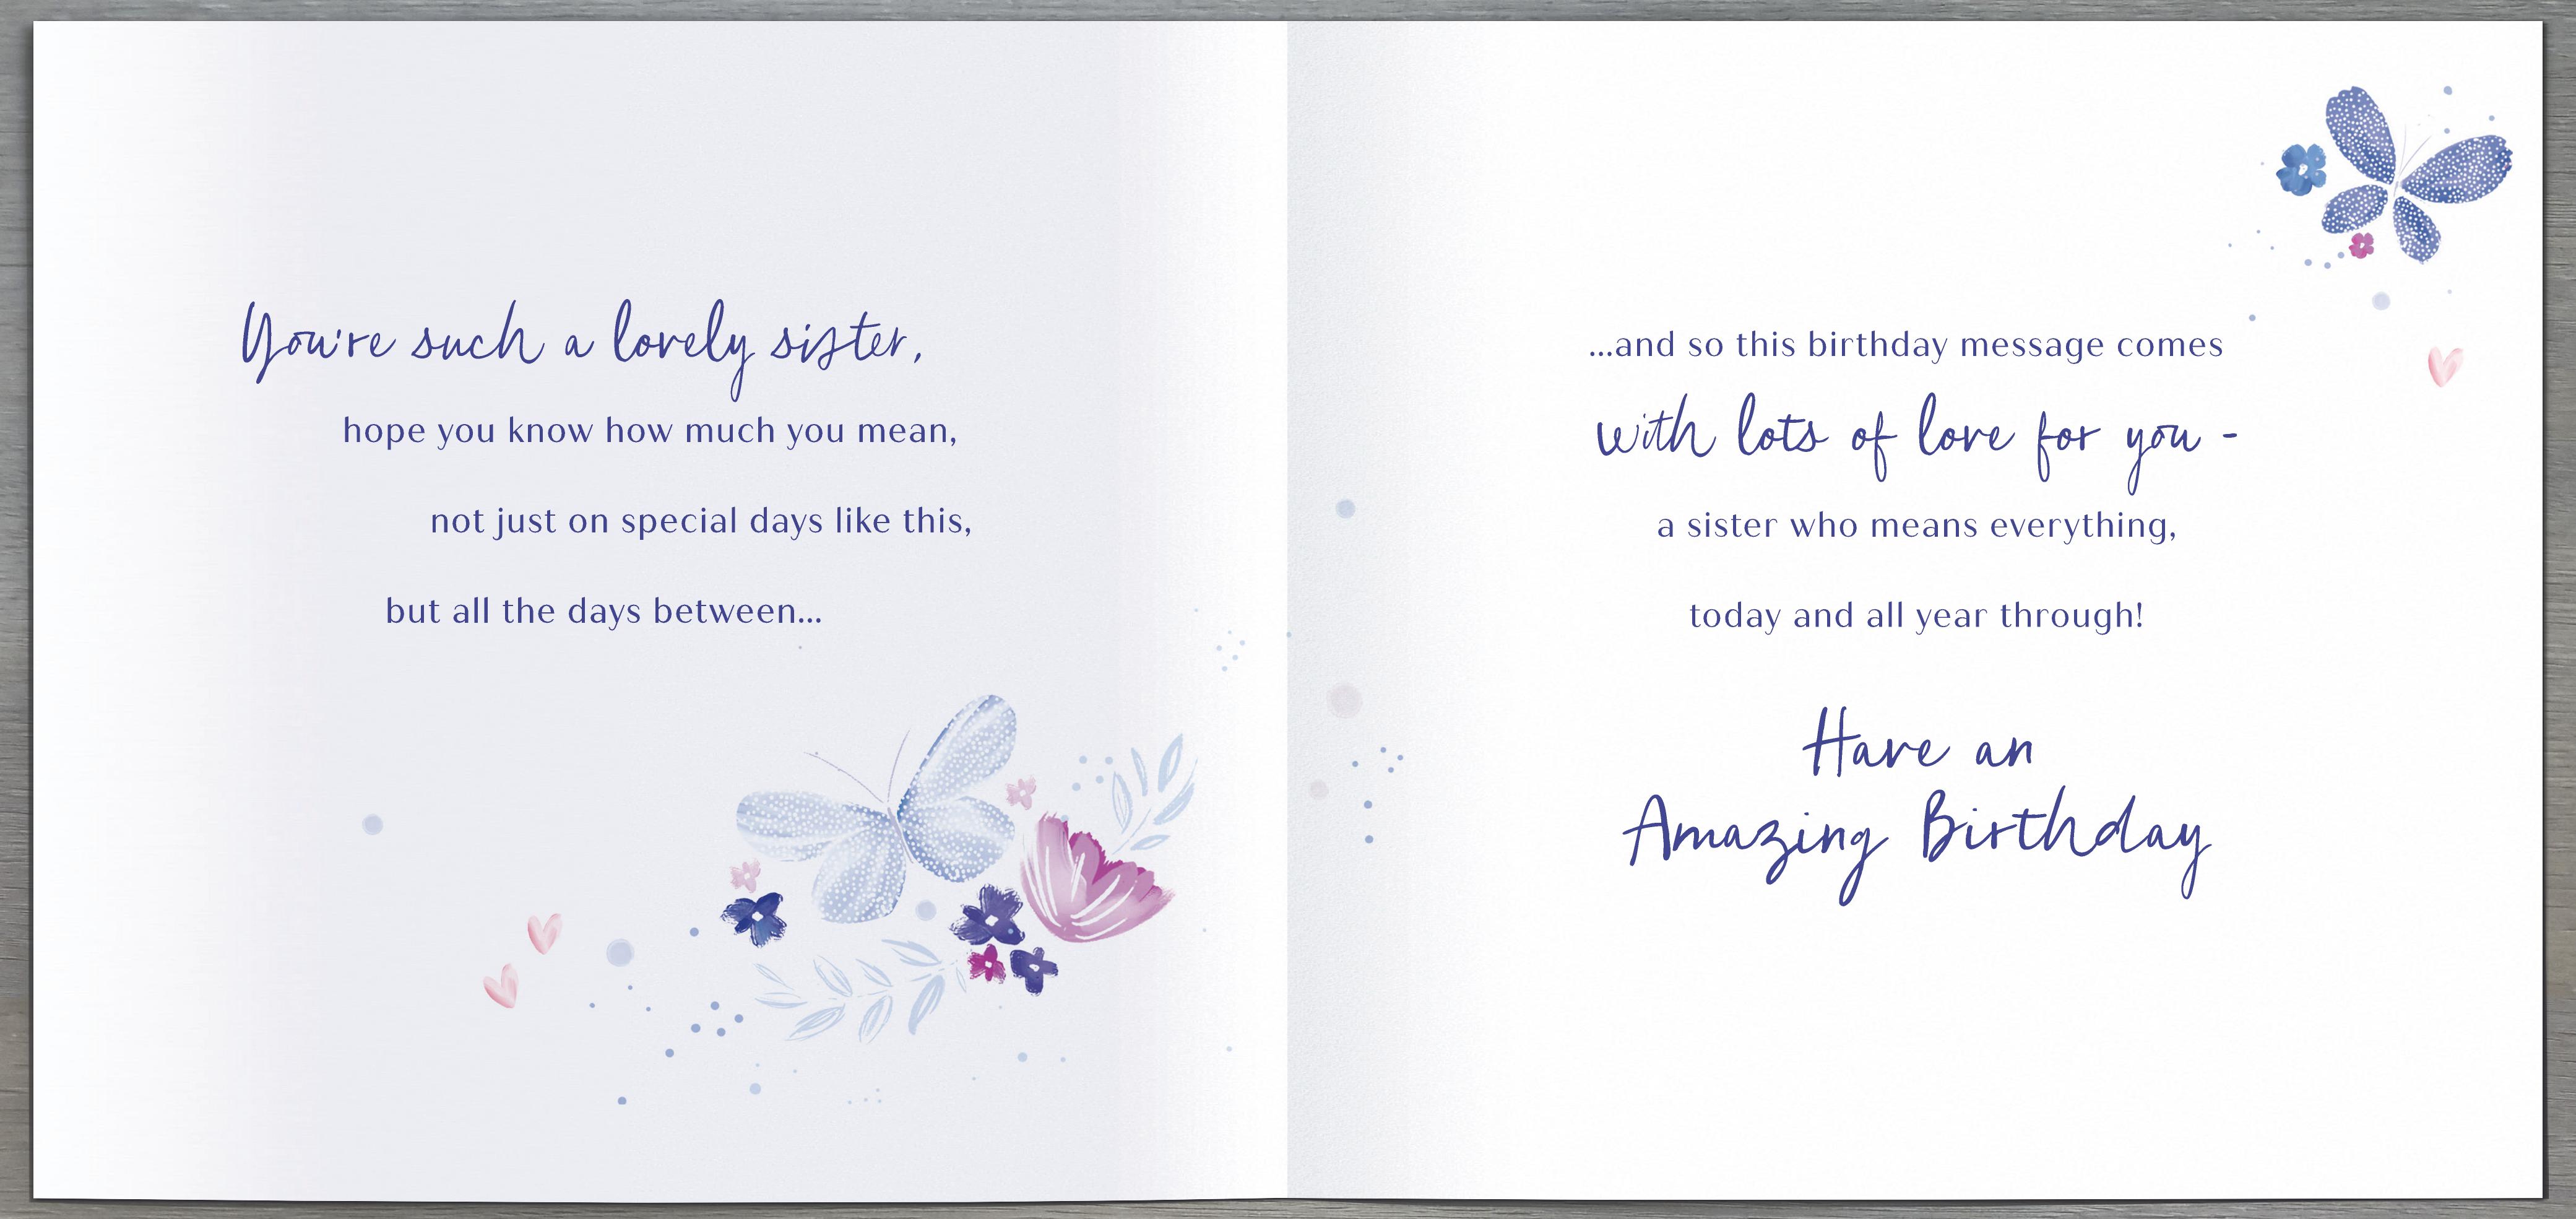 You're such a lovely sister,
hope you know how much you mean,
not just on special days like this,
but all the days between...
...and so this birthday message comes
with lots of love for you -
a sister who means everything,
today and all year through!
Have an
Amazing Birthday